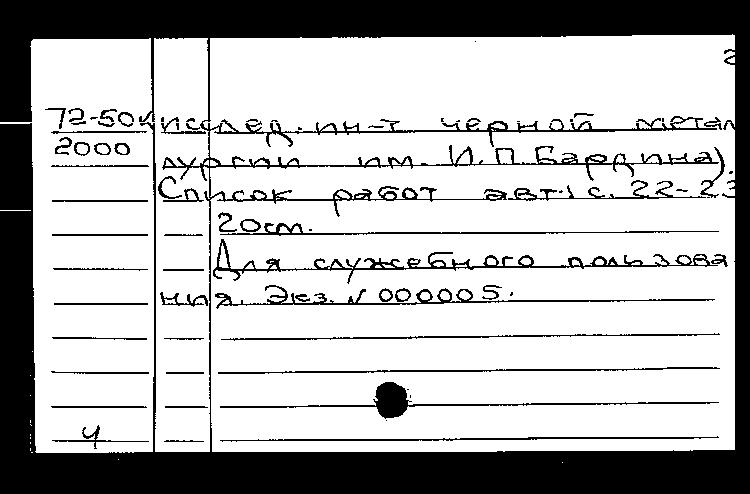 2
72-50к исслед. ин-т черной метал
2000 лургии им. И.П. Бардина).
Список работ авт.: с. 22-23
20см.
Для служебного пользова
ния. Экз. № 000005.
ч